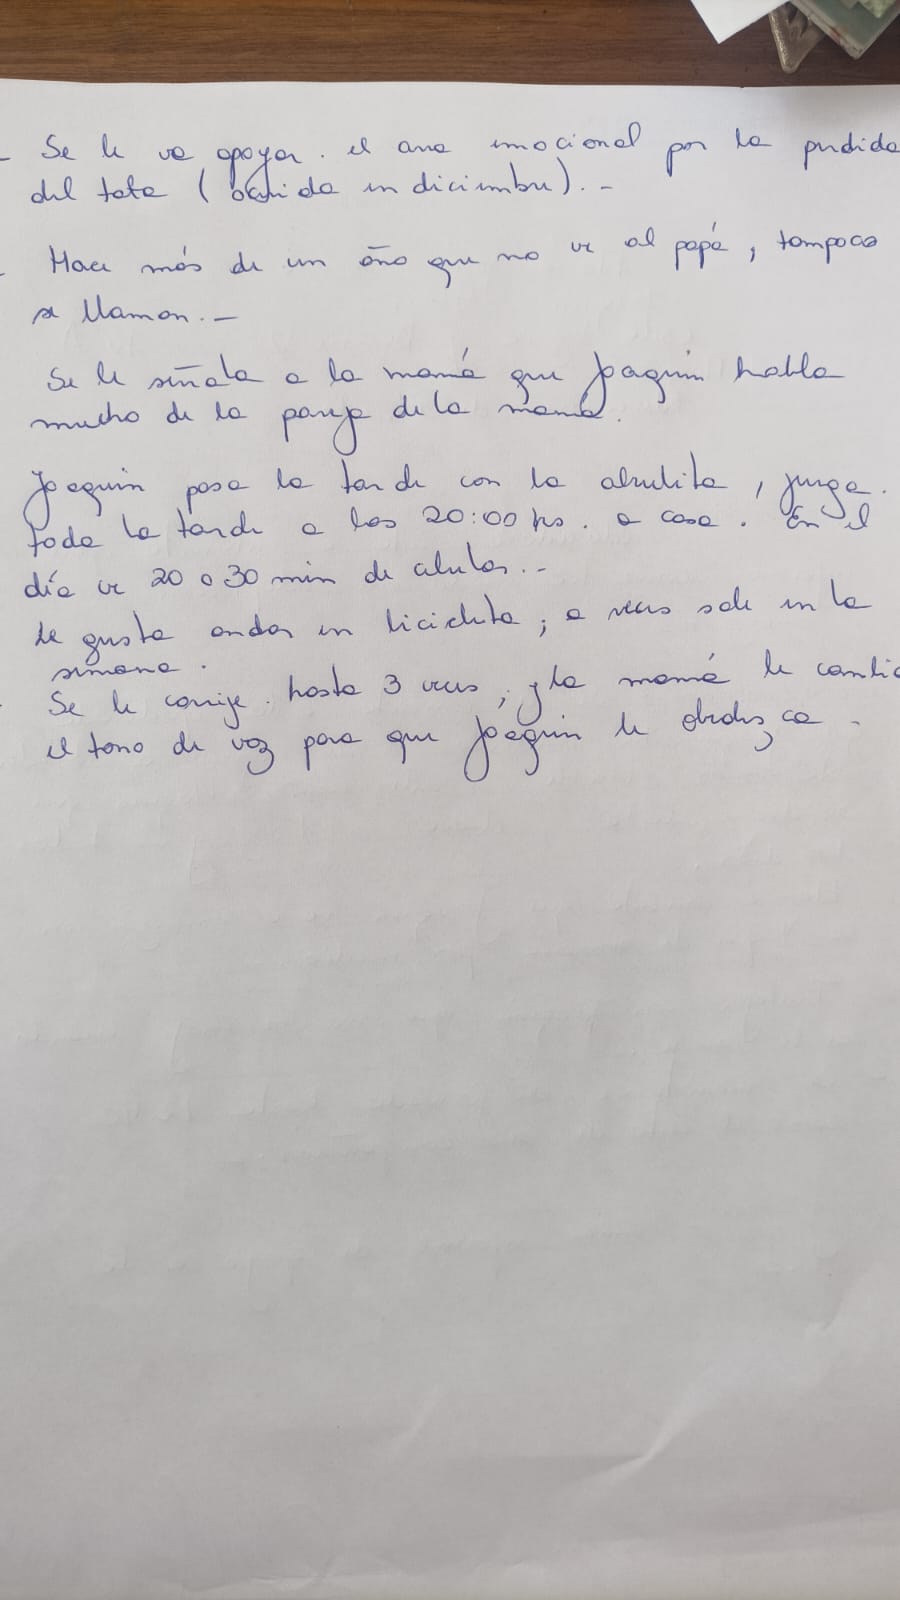 - Se le va apoyar. el area emocional por la perdida
del tata ( en diciembre). -
- Hace más de un año que no ve al papá, tampoco
se llaman. -
Se le señala a la mamá que Joaquin habla
mucho de la pareja de la mamá.
Joaquin pasa la tarde con la abuelita, juega.
toda la tarde a las 20:00 hs. a casa. En el
día ve 20 o 30 min de celular. --
Le gusta andar en bicicleta, a veces sale en la
semana.
- Se le corrige. hasta 3 veces, y la mamá le cambia
el tono de voz para que Joaquin le obedezca.